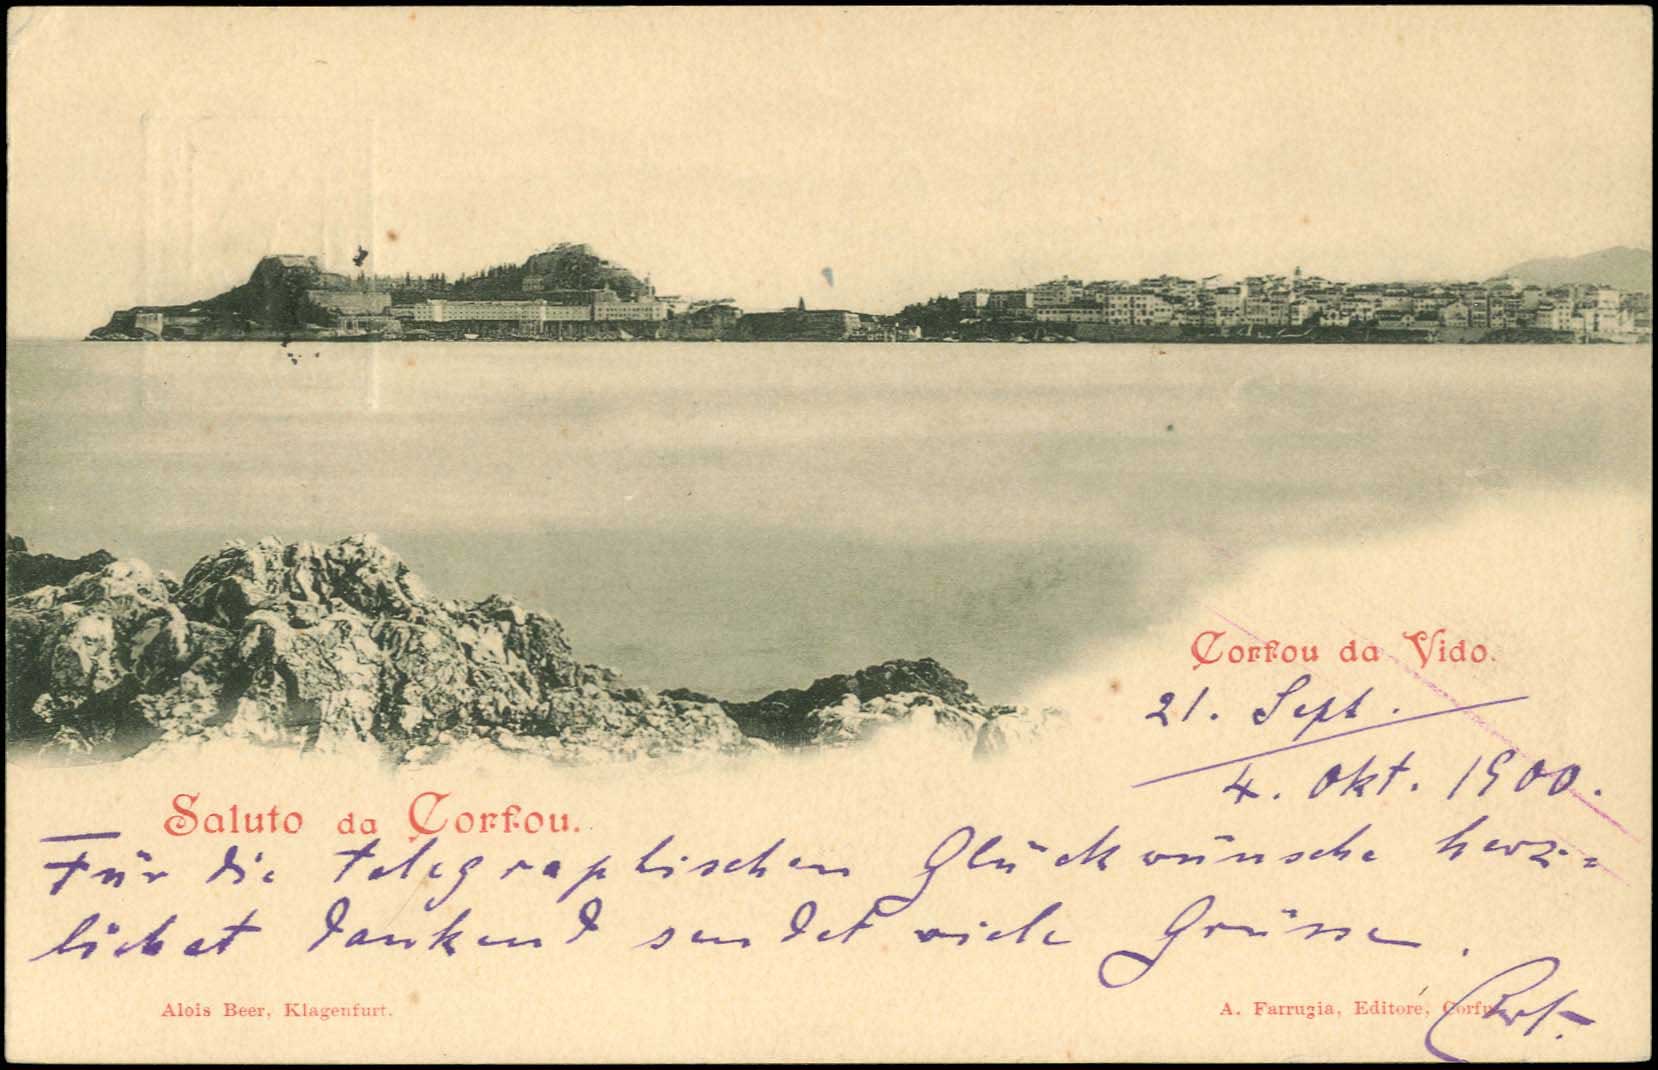 Corfou da Vido.
21. Sept.
4. Okt. 1900.
Saluto da Corfou.
Für die telegraphischen Glückwünsche herz=
lichst dankend sendet viele Grüsse.
Alois Beer, Klagenfurt.
A. Farrugia, Editore, Corfu